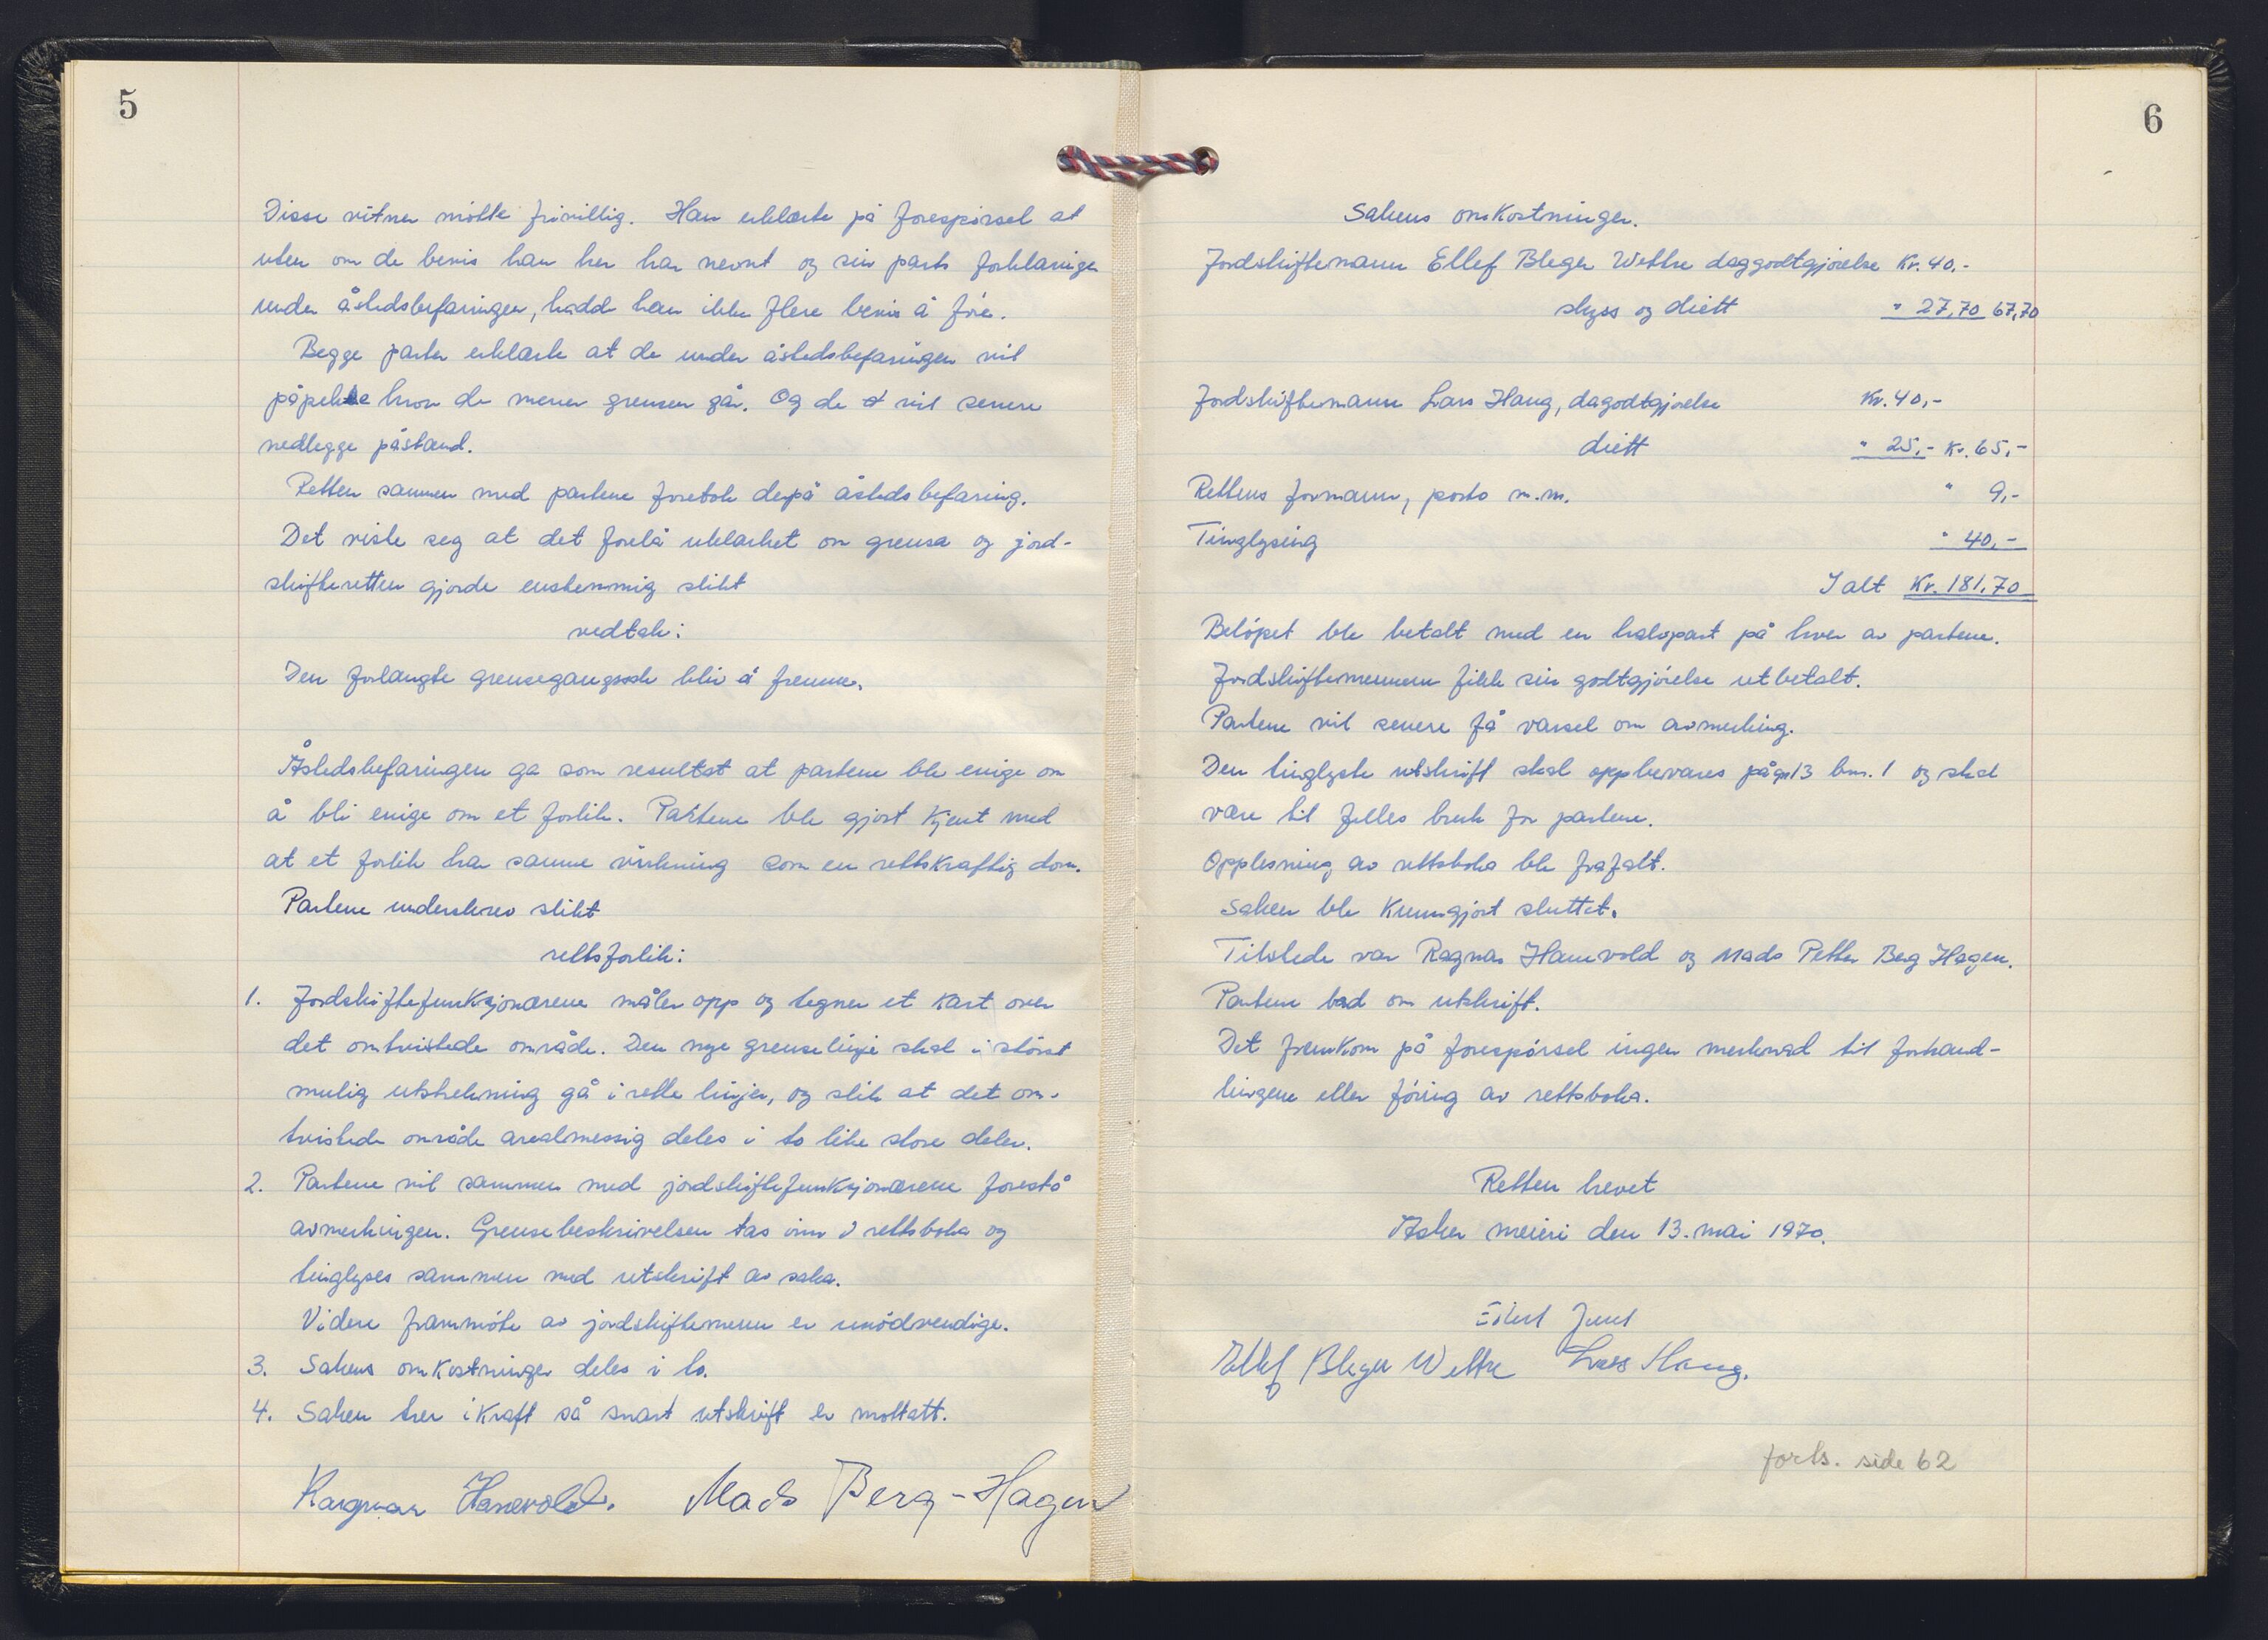 5
Disse vitner møtte frivillig. Han erklærte på forespørsel at
uten om de bevis han her har nevnt og sin parts forklaringer
under åstedsbefaringen, hadd han ikke flere bevis å føre.
Begge parter erklærte at de under åstedsbefaringen vil
påpeke hvor de mener grensen går. Og de vil senere
nedlegge påstand.
Retten sammen med partene foretok derpå åstedsbefaring.
Det viste seg at det forelå uklarhet om grensa og jord-
skifteretten gjorde enstemmig slikt
vedtak:
Den forlangte grensegangssak blir å fremme.
Åstedsbefaringen ga som resultat at partene ble enige om
å bli enige om et forlik. Partene ble gjort kjent med
at et forlik har samme virkning som en rettskraftig dom.
Partene underskrev slikt
rettsforlik:
1. Jordskiftefunksjonærene måler opp og tegner et kart over
det omtvistede område. Den nye grenselinje skal i størst
mulig utstrekning gå i rette linjer, og slik at det om-
tvistede område arealmessig deles i to like store deler.
2. Partene vil sammen med jordskiftefunksjonærene forestå
avmerkingen. Grensebeskrivelsen tas inn i rettsboka og
tinglyses sammen med utskrift av saka.
Videre frammøte av jordskiftemenn er unødvendige.
3. Sakens omkostninger deles i to.
4. Saken trer i kraft så snart utskrift er mottatt.
Ragnar Hanevold. Mads Berg-Hagen
6
Sakens omkostninger.
Jordskiftemann Ellef Bleger Wettre daggodtgjørelse Kr. 40,-
skyss og diett " 27,70 67,70
Jordskiftemann Lars Haug, dagodtgjørelse Kr. 40,-
diett " 25,- Kr. 65,-
Rettens formann, porto m.m. " 9,-
Tinglysing " 40,-
I alt Kr. 181,70
Beløpet ble betalt med en halvpart på hver av partene.
Jordskiftemennene fikk sin godtgjørelse utbetalt.
Partene vil senere få varsel om avmerking.
Den tinglyste utskrift skal oppbevares på gnr 13 bnr. 1 og skal
være til felles bruk for partene.
Opplesning av rettsboka ble frafalt.
Saken ble kunngjort sluttet.
Tilstede var Ragnar Hanevold og Mads Petter Berg Hagen.
Partene bad om utskrift.
Det fremkom på forespørsel ingen merknad til forhand-
lingene eller føring av rettsboka.
Retten hevet
Asker meieri den 13. mai 1970.
Eilert Juul
Ellef Bleger Wettre Lars Haug.
forts. side 62